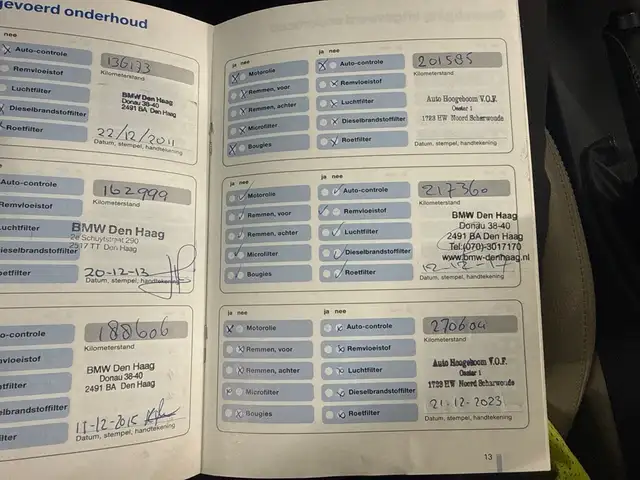 gevoerd onderhoud
nee
Auto-controle
136173
Remvloeistof
Kilometerstand
Luchtfilter
BMW Den Haag
Donau 38-40
2491 BA Den Haag
Dieselbrandstoffilter
Roetfilter
22/12/2011
Datum, stempel, handtekening
nee
Auto-controle
162999
Remvloeistof
Kilometerstand
Luchtfilter
BMW Den Haag
2e Schuytstraat 290
2517 TT Den Haag
Dieselbrandstoffilter
Roetfilter
20-12-13
Datum, stempel, handtekening
o-controle
188606
mvloeistof
Kilometerstand
uchtfilter
BMW Den Haag
Donau 38-40
2491 BA Den Haag
elbrandstoffilter
filter
11-12-2015
Datum, stempel, handtekening
ja nee
ja nee
Motorolie
Auto-controle
201585
Remmen, voor
Remvloeistof
Kilometerstand
Remmen, achter
Luchtfilter
Auto Hoogeboom V.O.F.
Oostar 1
1723 HW Noord Scharwoude
Microfilter
Dieselbrandstoffilter
Bougies
Roetfilter
Datum, stempel, handtekening
ja nee
ja nee
Motorolie
Auto-controle
217360
Remmen, voor
Remvloeistof
Kilometerstand
Remmen, achter
Luchtfilter
BMW Den Haag
Donau 38-40
2491 BA Den Haag
Tel:(070)-3017170
www.bmw-denhaag.nl
Microfilter
Dieselbrandstoffilter
Bougies
Roetfilter
12-12-17
Datum, stempel, handtekening
ja nee
ja nee
Motorolie
Auto-controle
270604
Remmen, voor
Remvloeistof
Kilometerstand
Remmen, achter
Luchtfilter
Auto Hoogeboom V.O.F.
Oostar 1
1723 HW Noord Scharwoude
Microfilter
Dieselbrandstoffilter
Bougies
Roetfilter
21-12-2023
Datum, stempel, handtekening
13